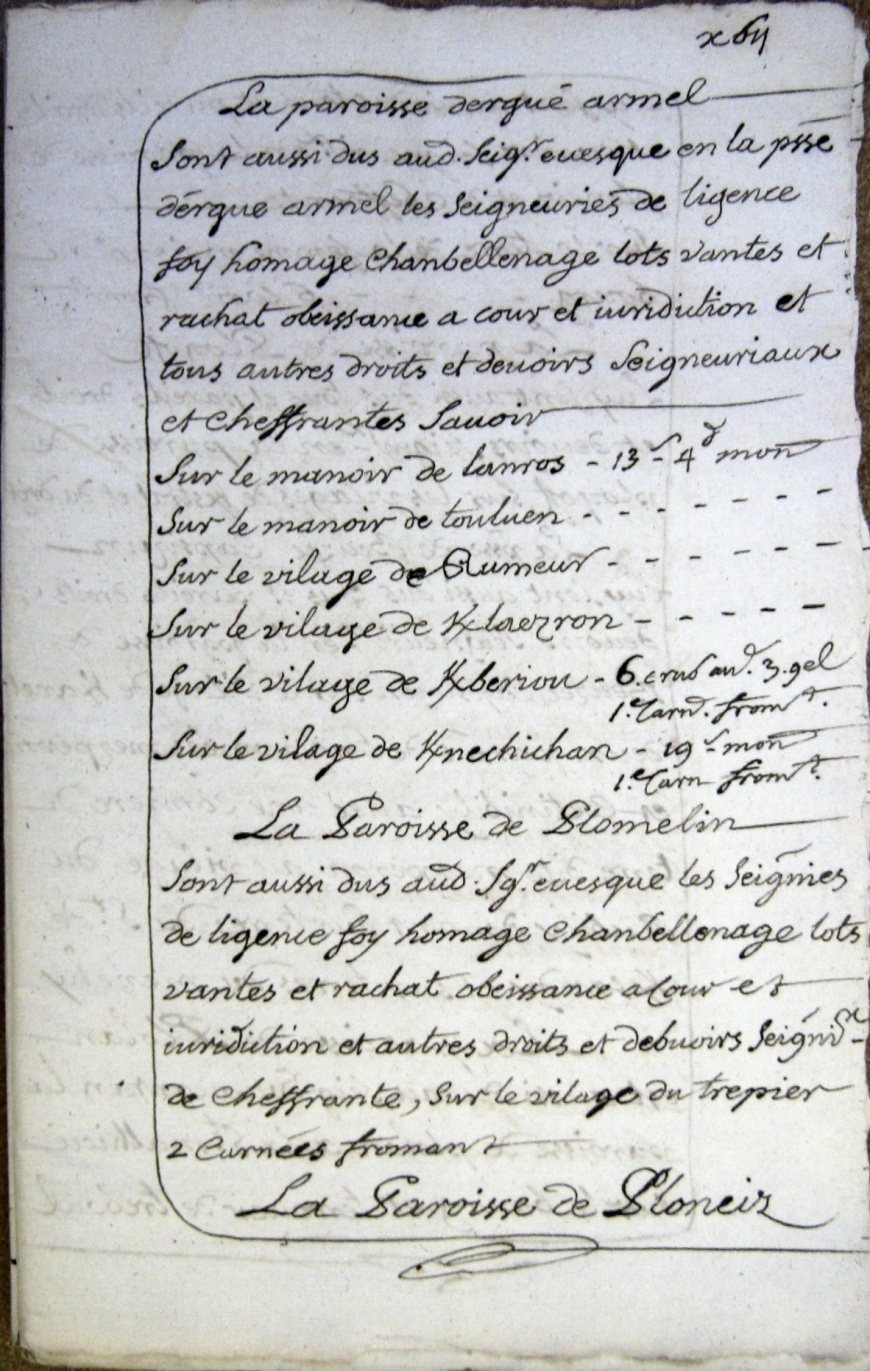 La paroisse dergué armel
Sont aussi dus aud. Seigr. euesque en la psse
dergue armel les Seigneuries de ligence
foy homage Chanbellenage lots vantes et
rachat obeissance a cour et iuridiction et
tous autres droits et deuoirs Seigneuriaux
et cheffrantes Sauoir
Sur le manoir de lanros - 13s 4d mon
Sur le manoir de touluen - - - - - - -
Sur le vilage de Rumeur - - - - - - -
Sur le vilage de Klaezron - - - - -
Sur le vilage de Kberiou - 6. crub aud. 3. gel
1e. Carnd. fromt.
Sur le vilage de Knechichan - 19s mon
1e. Carn fromt.
La Paroisse de Plomelin
Sont aussi dus aud. Sgr. euesque les Seignies
de ligence foy homage Chanbellenage lots
vantes et rachat obeissance a Cour et
iuridiction et autres droits et debuoirs Seignix
de cheffrante, Sur le vilage du trepier
2 Carnées fromant
La Paroisse de Ploneis